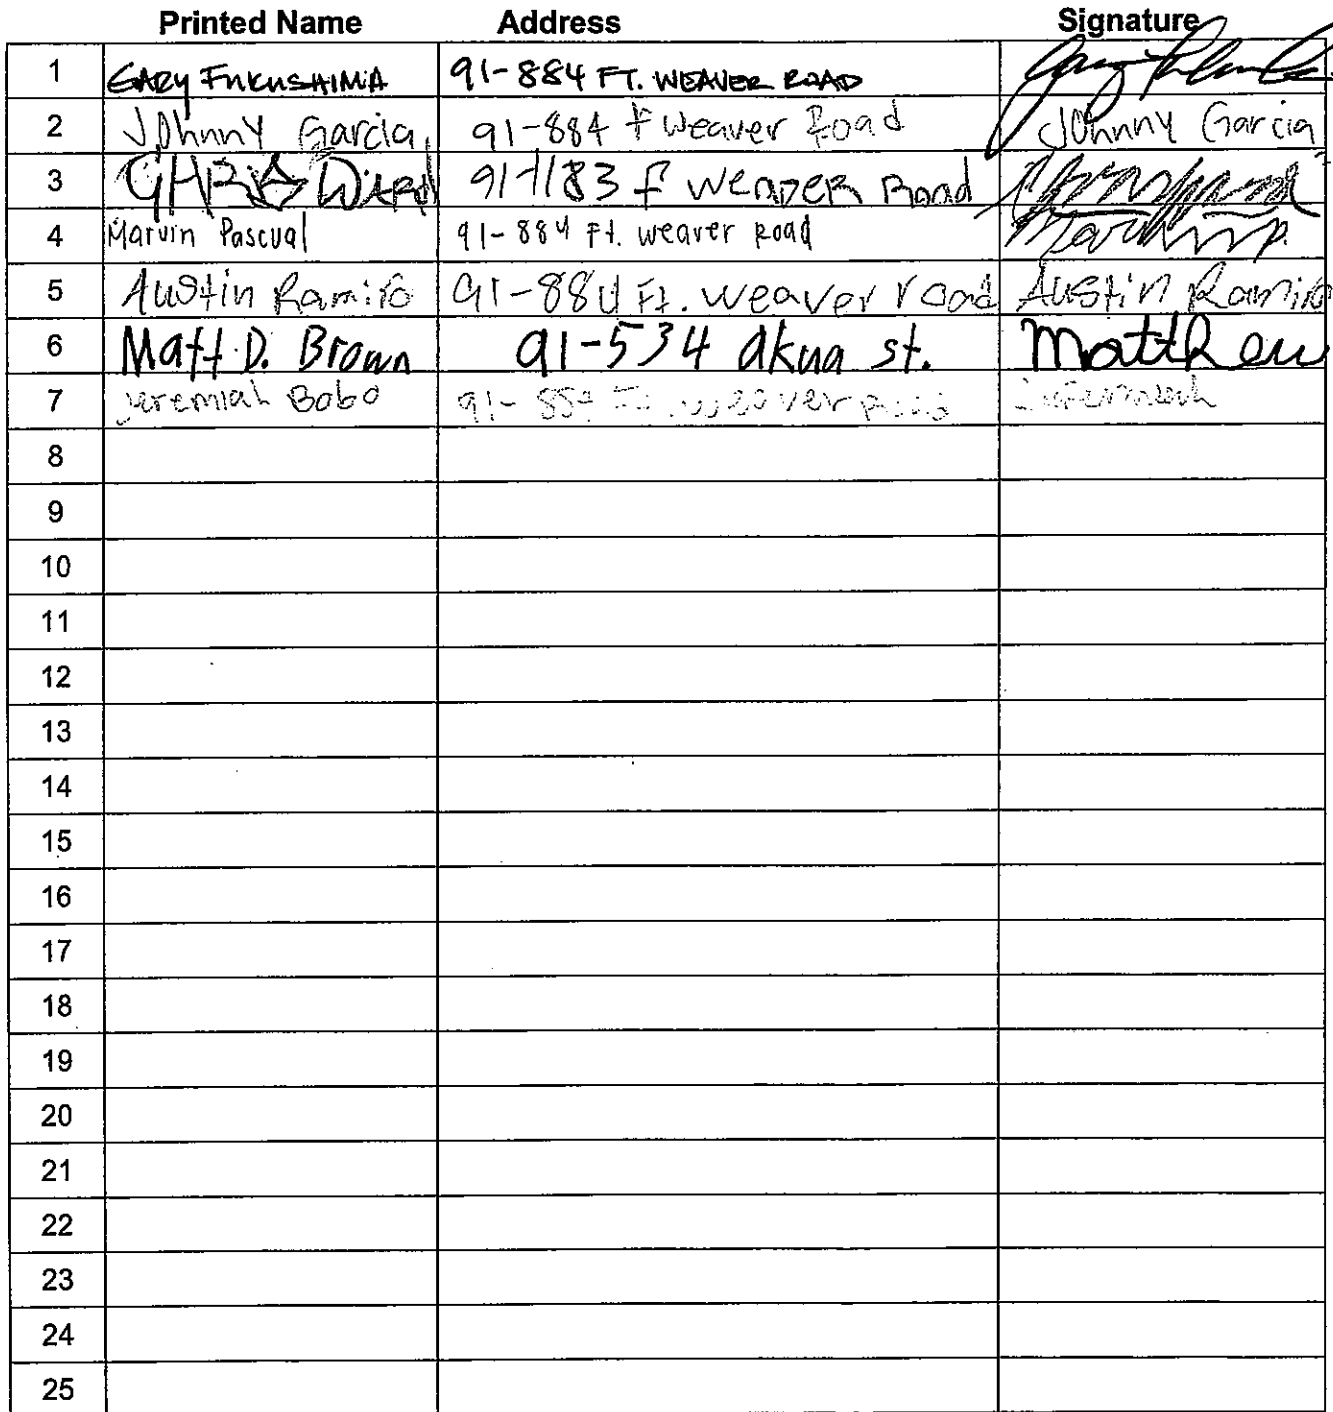 Printed Name Address Signature
1 GARY FUKUSHIMA 91-884 FT. WEAVER ROAD
2 Johnny Garcia 91-884 F Weaver Road Johnny Garcia
3 CHRIS Ward 91-1183 F WEAVER Road
4 Marvin Pascual 91-884 Ft. weaver Road
5 Austin Ramiro 91-884 Ft. weaver road Austin Ramiro
6 Matt D. Brown 91-534 akua st. Matthew
7 Jeremiah Bobo 91-884 Ft. weaver Road Jeremiah
8
9
10
11
12
13
14
15
16
17
18
19
20
21
22
23
24
25